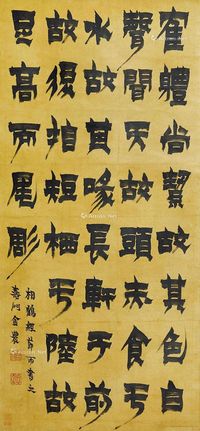 寉體尚絜故其色白
聲聞天故頭赤食亏
水故其喙長軒于前
故後指短栖亏陸故
足高兩尾彫
相鶴經書之
壽門金農